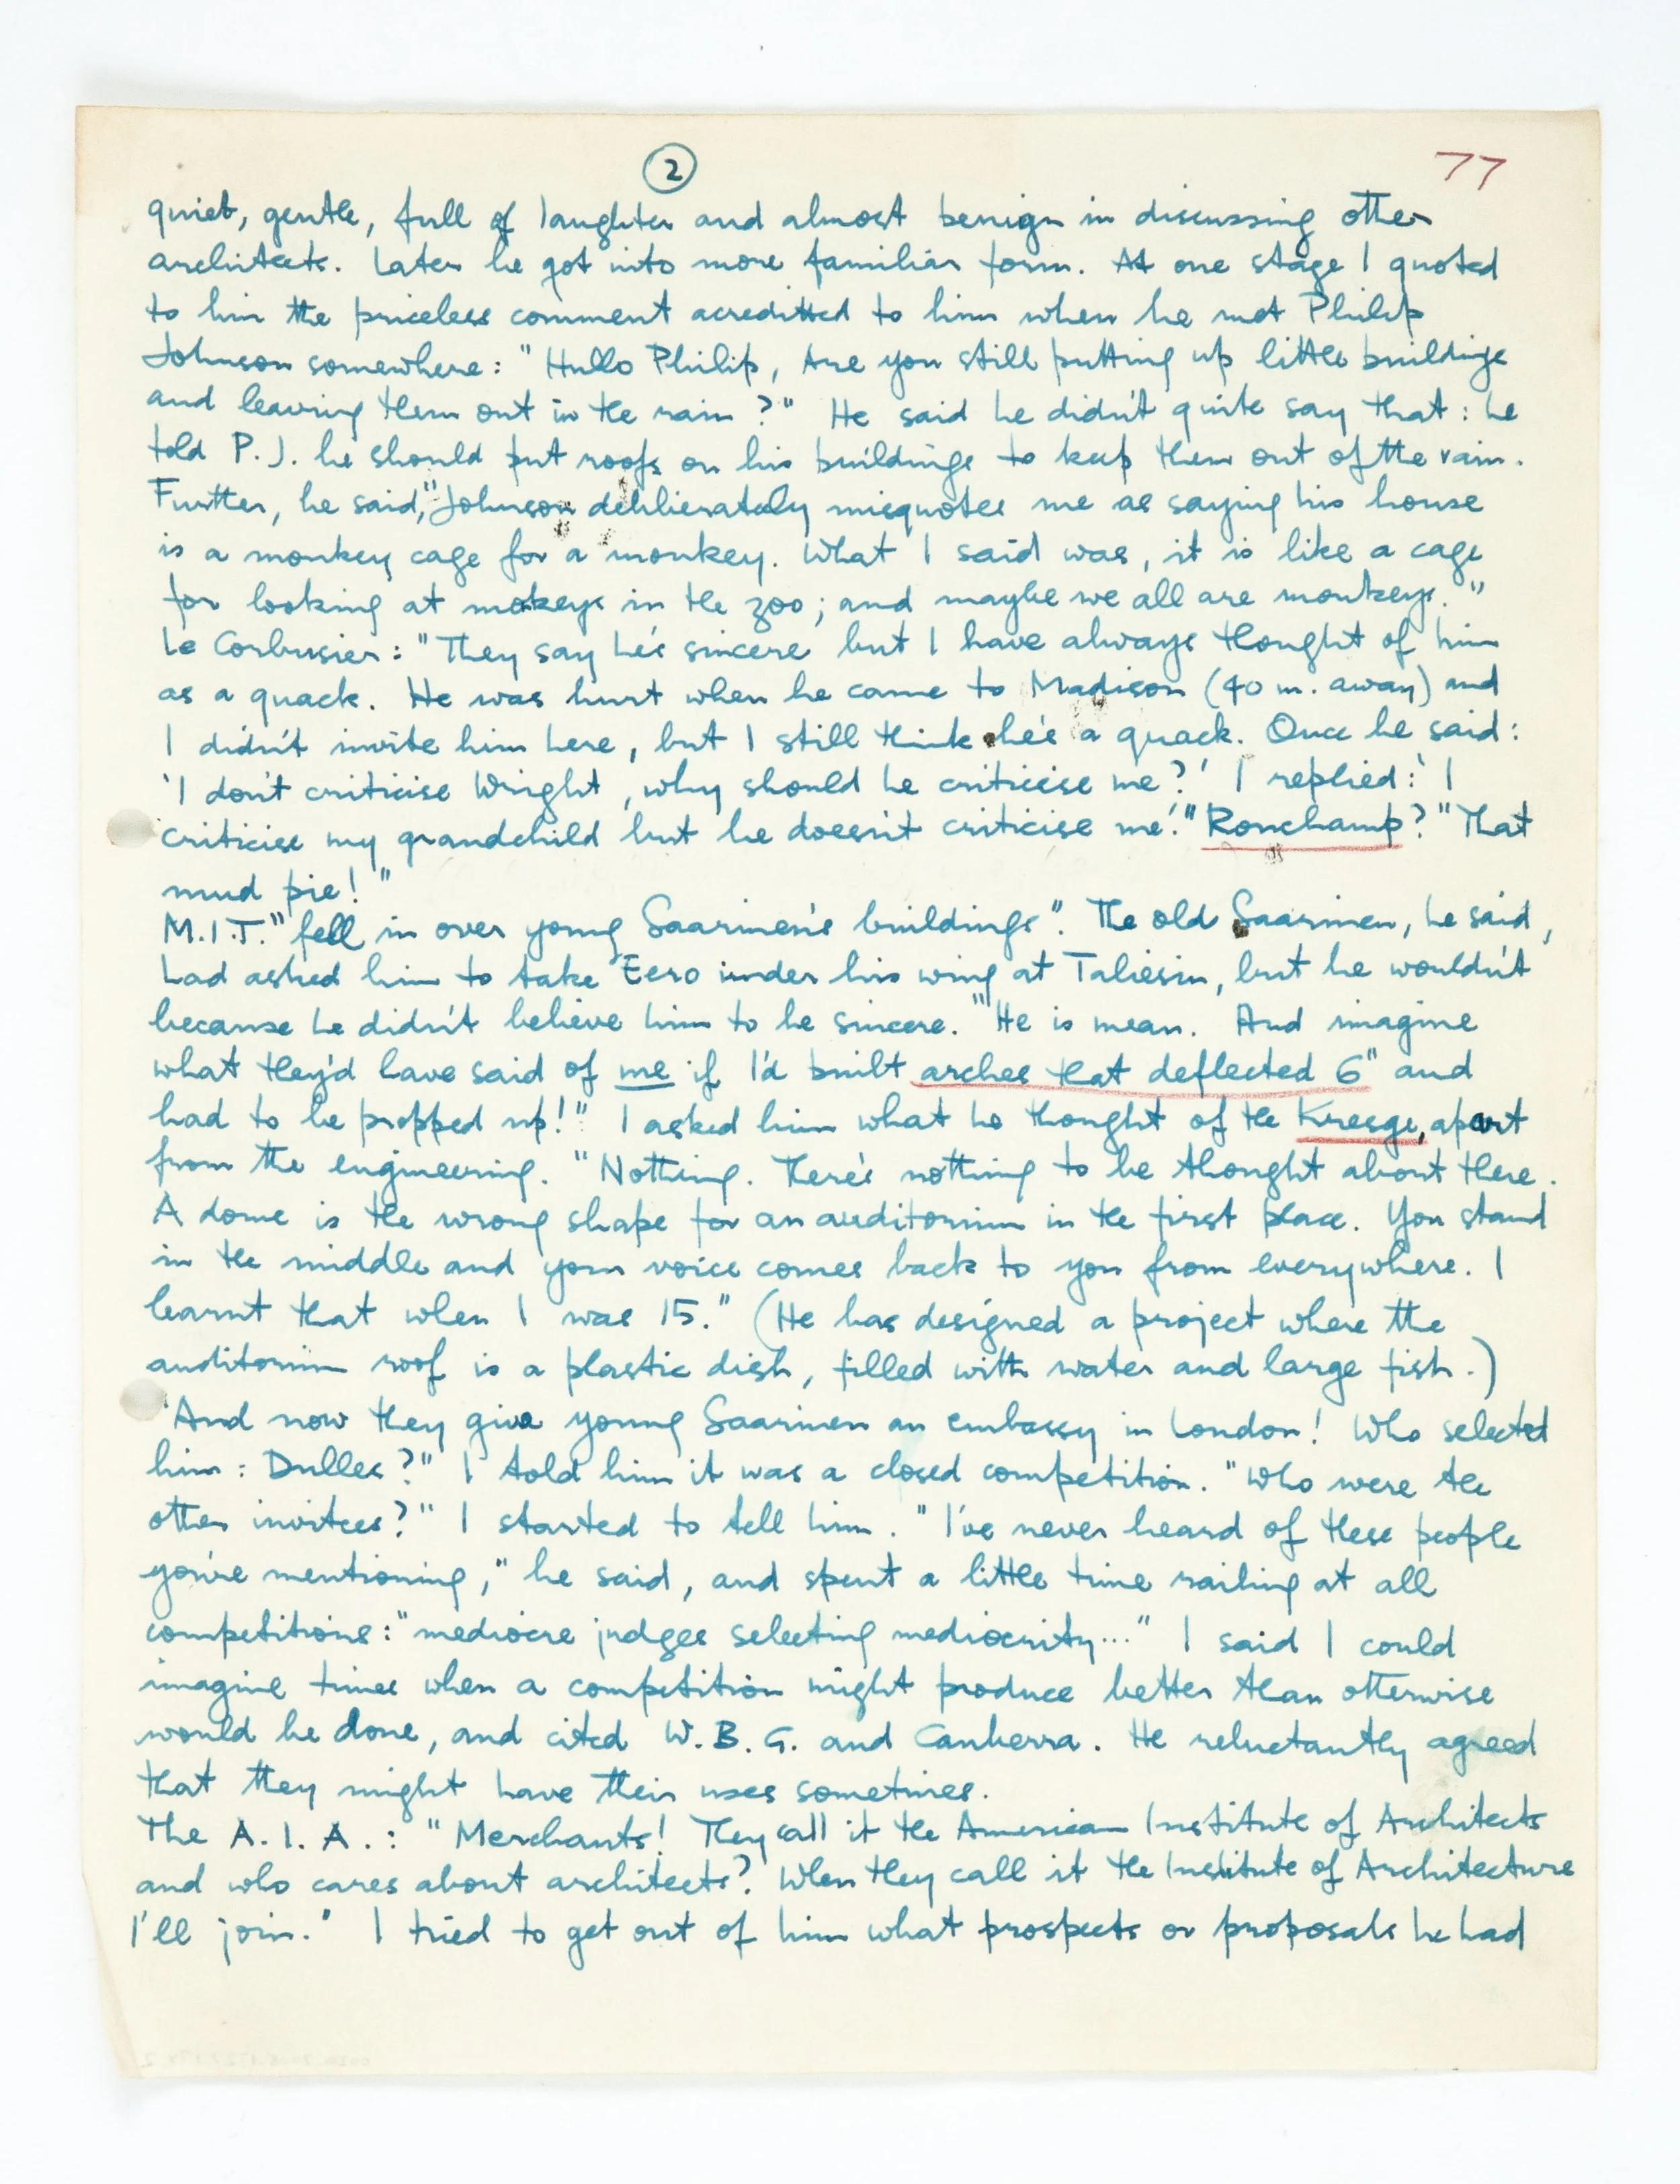 2
77
quiet, gentle, full of laughter and almost benign in discussing other
architects. Later he got into more familiar form. At one stage I quoted
to him the priceless comment acreditted to him when he met Philip
Johnson somewhere: "Hullo Philip, Are you still putting up little buildings
and leaving them out in the rain?" He said he didn't quite say that: he
told P.J. he should put roofs on his buildings to keep them out of the rain.
Further, he said, "Johnson deliberately misquotes me as saying his house
is a monkey cage for a monkey. What I said was, it is like a cage
for looking at mokeys in the zoo; and maybe we all are monkeys."
Le Corbusier: "They say he's sincere but I have always thought of him
as a quack. He was hurt when he came to Madison (40 m. away) and
I didn't invite him here, but I still think he's a quack. Once he said:
'I don't criticise Wright, why should he criticise me?' I replied: 'I
criticise my grandchild but he doesn't criticise me'." Ronchamp? "That
mud pie!"
M.I.T. "fell in over young Saarinen's buildings". The old Saarinen, he said,
had asked him to take Eero under his wing at Taliesin, but he wouldn't
because he didn't believe him to be sincere. "He is mean. And imagine
what they'd have said of me if I'd built arches that deflected 6" and
had to be propped up!" I asked him what he thought of the Kresge, apart
from the engineering. "Nothing. There's nothing to be thought about there.
A dome is the wrong shape for an auditorium in the first place. You stand
in the middle and your voice comes back to you from everywhere. I
learnt that when I was 15." (He has designed a project where the
auditorium roof is a plastic dish, filled with water and large fish.)
"And now they give young Saarinen an embassy in London! Who selected
him: Dulles?" I told him it was a closed competition. "Who were the
other invitees?" I started to tell him. "I've never heard of these people
you're mentioning," he said, and spent a little time railing at all
competitions: "mediocre judges selecting mediocrity..." I said I could
imagine times when a competition might produce better than otherwise
would be done, and cited W.B.G. and Canberra. He reluctantly agreed
that they might have their uses sometimes.
The A.I.A.: "Merchants! They call it the American Institute of Architects
and who cares about architects? When they call it the Institute of Architecture
I'll join." I tried to get out of him what prospects or proposals he had